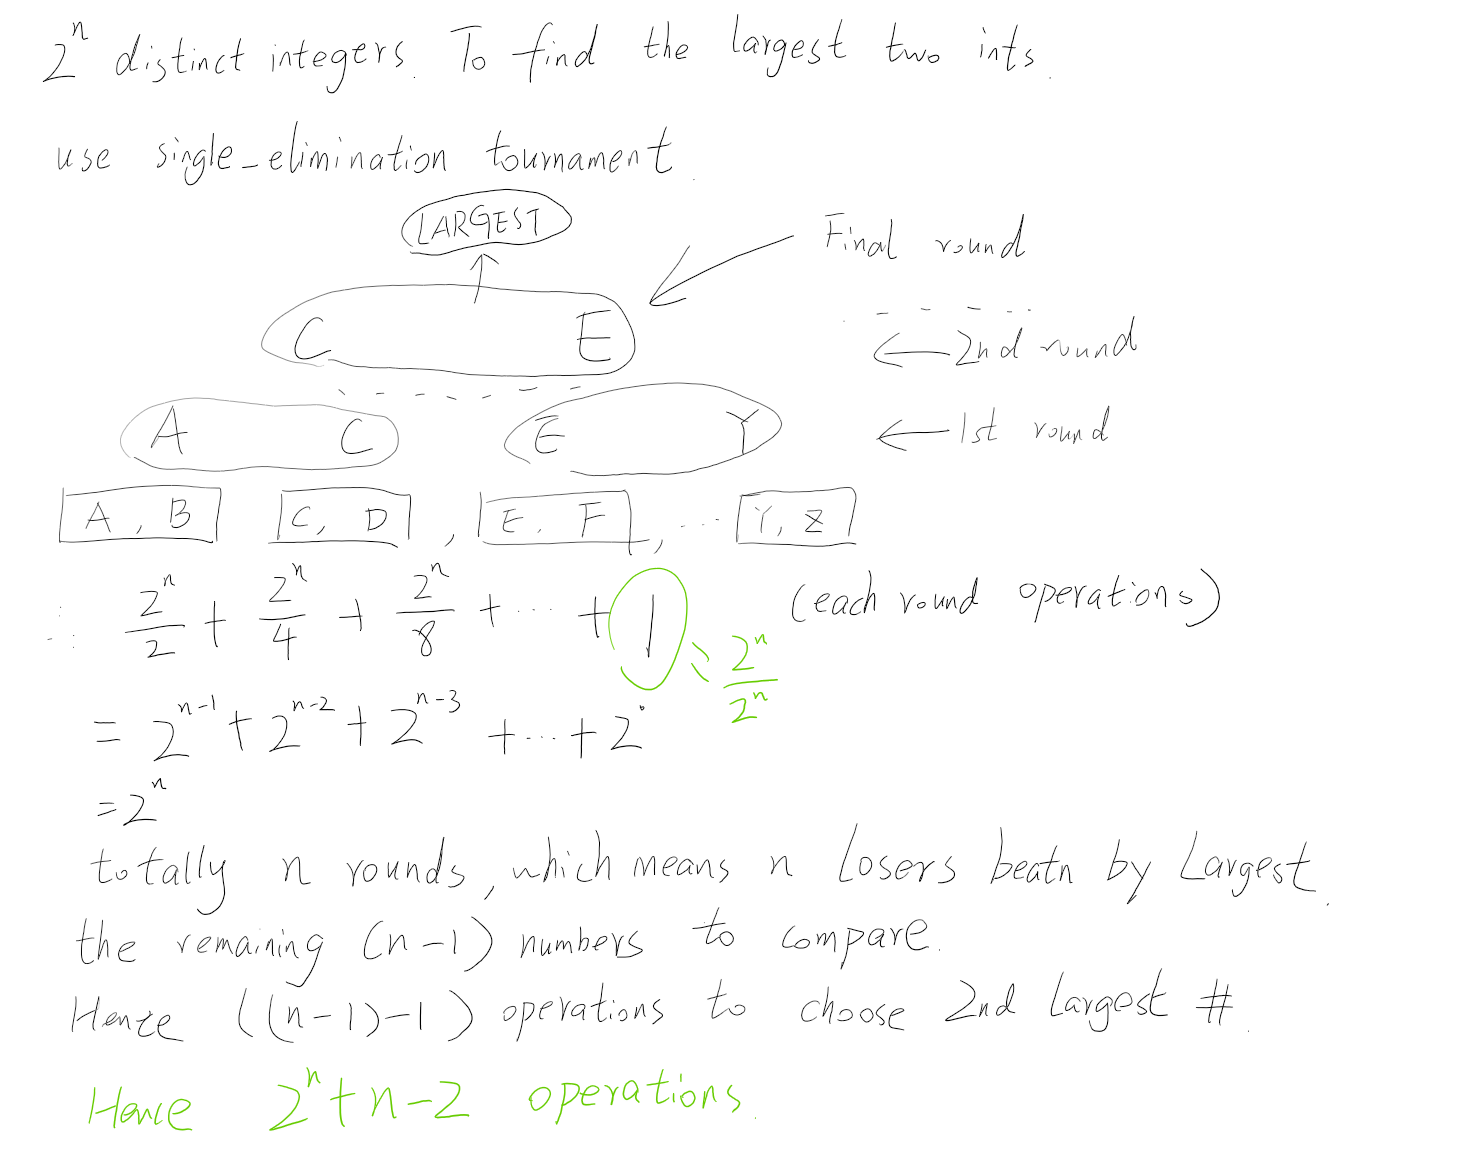 2^n distinct integers. To find the largest two ints.
use single-elimination tournament.
LARGEST
Final round
C E
← 2nd round
A C E Y
← 1st round
A, B C, D, E, F, ... Y, Z
∴ 2^n/2 + 2^n/4 + 2^n/8 + ... + 1 (each round operations)
2^n/2^n
= 2^{n-1} + 2^{n-2} + 2^{n-3} + ... + 2^0
= 2^n
totally n rounds, which means n Losers beatn by Largest.
the remaining (n-1) numbers to compare.
Hence ((n-1)-1) operations to choose 2nd largest #.
Hence 2^n+n-2 operations.